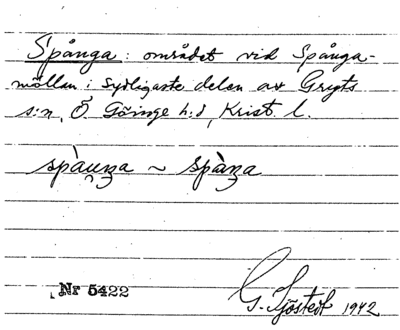 Spånga: området vid Spånga-
möllan i sydligaste delen av Gryts
s:n, Ö. Göinge h:d, Krist. l.
spàu̯ŋa ~ spàŋa
Nr 5422
G. Sjöstedt 1942